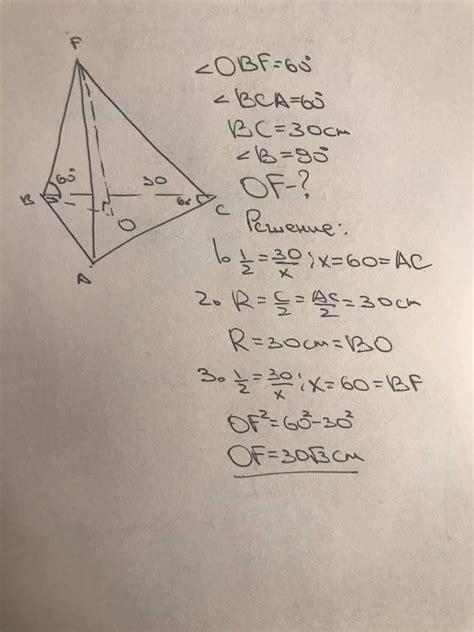 F
60°
30
B
60
C
O
A
∠OBF=60°
∠BCA=60°
BC=30cm
∠B=90°
OF-?
Решение:
1. 1/2=30/x; x=60=AC
2. R=c/2=AC/2=30cm
R=30cm=BO
3. 1/2=30/x; x=60=BF
OF²=60²-30²
OF=30√3cm